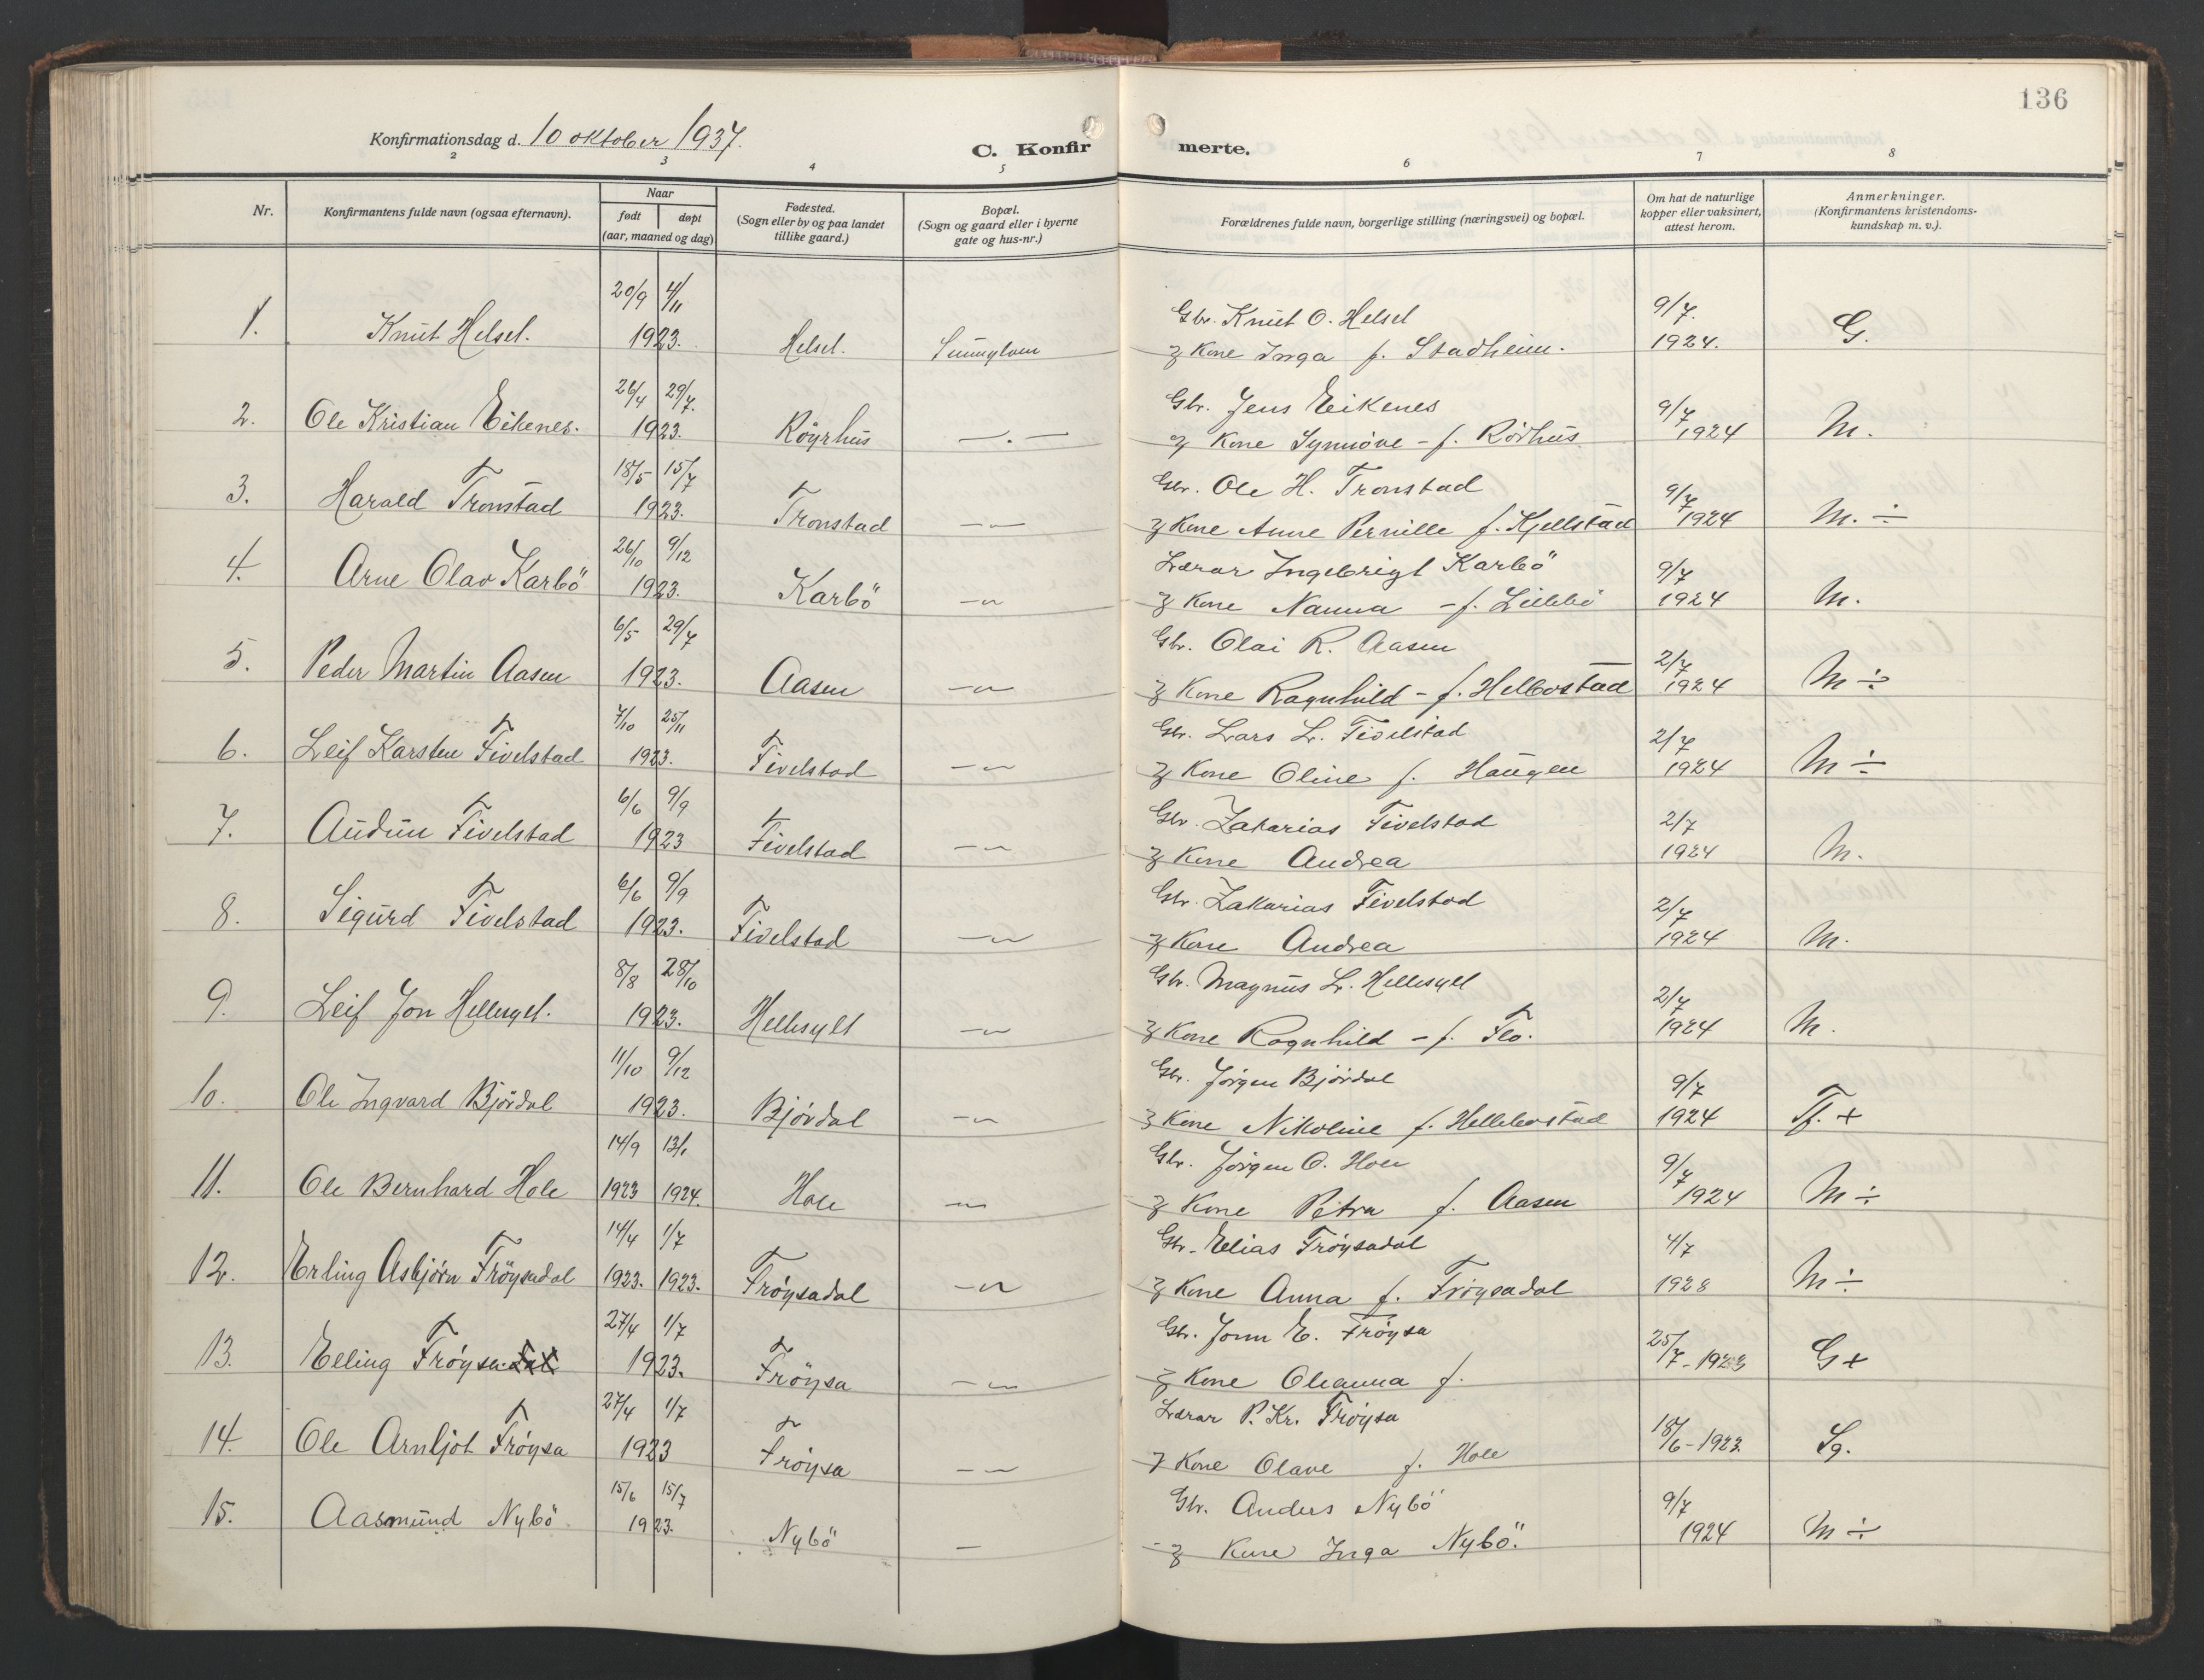 136
Konfirmationsdag d. 10 oktober 1937.
C. Konfirmerte.
2 3 4 5 6 7 8
Nr.
Konfirmantens fulde navn (ogsaa efternavn).
Naar
født døpt
(aar, maaned og dag)
Fødested.
(Sogn eller by og paa landet
tillike gaard.)
Bopæl.
(Sogn og gaard eller i byerne
gate og hus-nr.)
Forældrenes fulde navn, borgerlige stilling (næringsvei) og bopæl.
Om hat de naturlige
kopper eller vaksinert,
attest herom.
Anmerkninger.
(Konfirmantens kristendoms-
kundskap m. v.).
20/9 4/11 Gbr. Knut O. Helset 9/7.
1. Knut Helset. 1923. Helset. Sunnylven & Kone Inga f. Stadheim. 1924. G.
26/4 29/7. Gbr. Jens Eikenes 9/7
2. Ole Kristian Eikenes. 1923. Röyrhus —.— & Kone Synnöve - f. Rödhus 1924 M.
18/5 15/7 Gbr. Ole H. Tronstad 9/7
3. Harald Tronstad 1923. Tronstad —„— & Kone Anne Pernille f. Kjellstad 1924 M. ÷
26/10 9/12 Lærar Ingebrigt Karbö 9/7
4. Arne Olav Karbö 1923. Karbö —„— & Kone Nanna - f. 1924 M.
6/5 29/7 Gbr. Olai R. Aasen 2/7
5. Peder Martin Aasen 1923. Aasen —„— & Kone Ragnhild - f. Hellbostad 1924 M ÷
7/10 25/11 Gbr. Lars L. Fivelstad 2/7
6. Leif Karsten Fivelstad 1923. Fivelstad —„— & Kone Oline f. Haugen 1924 M ÷
6/6 9/9 Gbr. Zakarias Fivelstad 2/7
7. Audun Fivelstad 1923 Fivelstad —„— & Kone Andrea 1924 M.
6/6 9/9 Gbr. Zakarias Fivelstad 2/7
8. Sigurd Fivelstad 1923. Fivelstad —„— & Kone Andrea 1924 M.
8/8 28/10 Gbr. Magnus L. Hellesylt 2/7
9. Leif Jon Hellesylt. 1923. Hellesylt —„— & Kone Ragnhild - f. Flo. 1924 M.
11/10 9/12 Gbr. Jörgen Björdal 9/7
10. Ole Ingvard Björdal 1923. Björdal —„— & Kone Nikoline f. Hellebostad 1924 Tf. +
14/9 13/1 Gbr. Jörgen O. Hole 9/7
11. Ole Bernhard Hole 1923 1924. Hole —„— & Kone Petra f. Aasen 1924 M ÷
14/4 1/7 Gbr. Elias Fröysadal 4/7
12. Erling Asbjörn Fröysadal 1923. 1923. Fröysadal —„— & Kone Anna f. Fröysadal 1928 M ÷
27/4 1/7 Gbr. Jonn E. Fröysa 25/7-1923
13. Elling Fröysa 1923. Fröysa —„— & Kone Oleanna f. G +
27/4 1/7 Lærar P. Kr. Fröysa 18/6-1923.
14. Ole Arnljot Fröysa 1923 Fröysa —„— & Kone Olave f. Hole Sg.
15/6 15/7 Gbr. Anders Nybö 9/7
15. Aasmund Nybö 1923. Nybö — & Kone Inga Nybö. 1924 M ÷